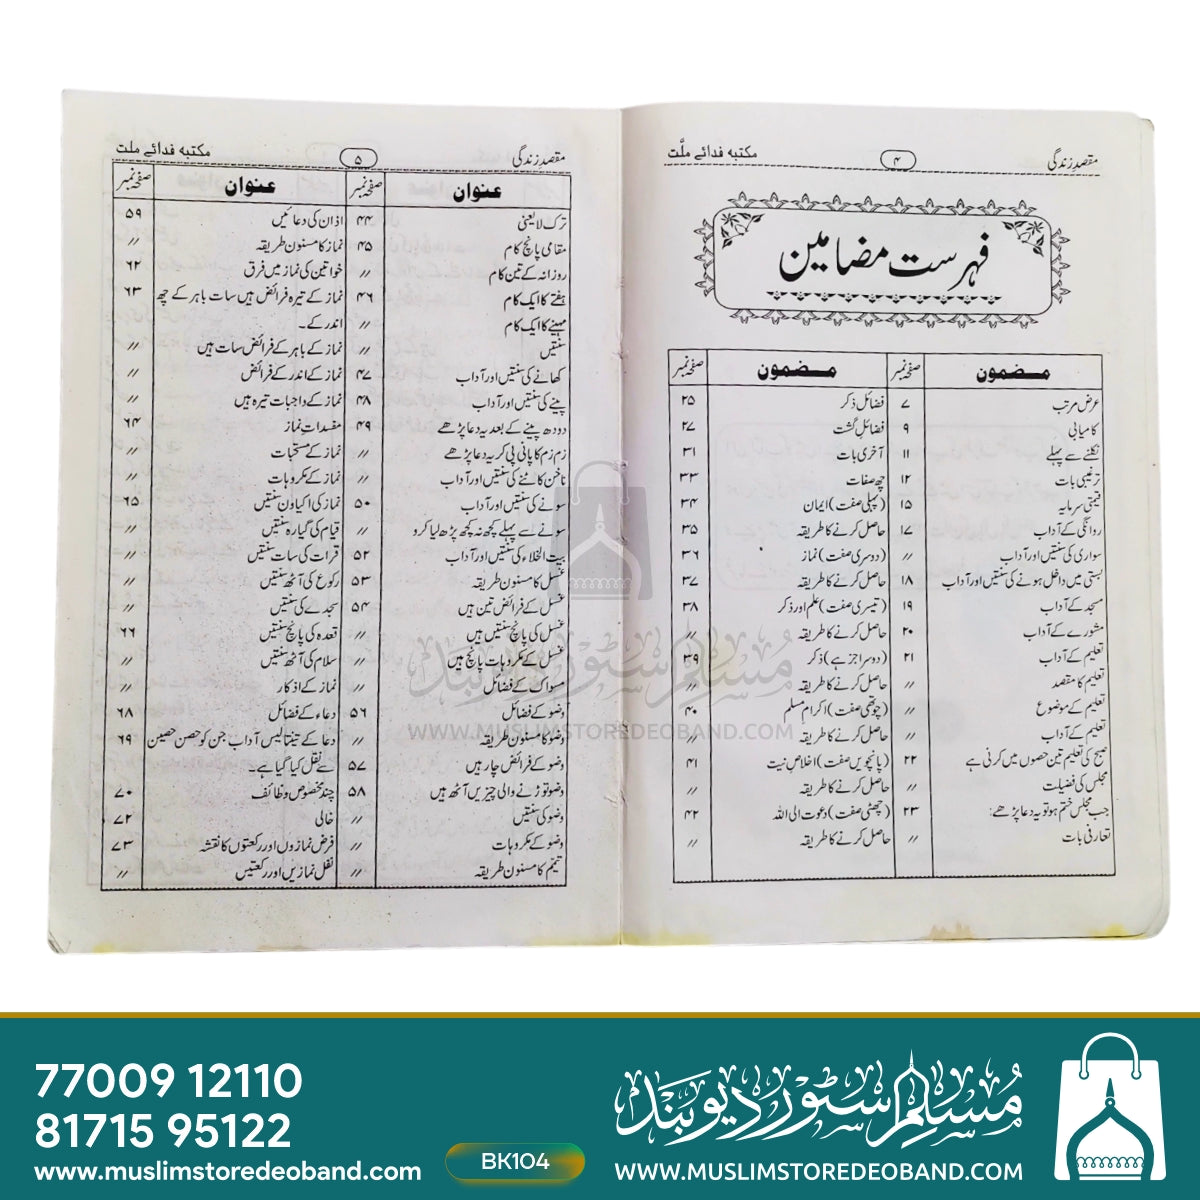 مقصدِ زندگی ۴ مکتبہ فدائے ملّت
فہرست مضامین
مضمون صفحہ نمبر مضمون صفحہ نمبر
عرض مرتب ۷ فضائل ذکر ۲۵
کامیابی ۹ فضائل گشت ۲۷
نکلنے سے پہلے ۱۱ آخری بات ۳۱
ترغیبی بات ۱۲ چھ صفات ۳۳
قیمتی سرمایہ ۱۵ (پہلی صفت) ایمان ۳۴
روانگی کے آداب ۱۷ حاصل کرنے کا طریقہ ۳۵
سواری کی سنتیں اور آداب ٫٫ (دوسری صفت) نماز ۳۶
بستی میں داخل ہونے کی سنتیں اور آداب ۱۸ حاصل کرنے کا طریقہ ۳۷
مسجد کے آداب ۱۹ (تیسری صفت) علم اور ذکر ۳۸
مشورے کے آداب ۲۰ حاصل کرنے کا طریقہ ٫٫
تعلیم کے آداب ۲۱ (دوسرا جز ہے) ذکر ۳۹
تعلیم کا مقصد ٫٫ حاصل کرنے کا طریقہ ٫٫
تعلیم کے موضوع ٫٫ (چوتھی صفت) اکرام مسلم ۴۰
تعلیم کے آداب ٫٫ حاصل کرنے کا طریقہ ٫٫
صبح کی تعلیم تین حصوں میں کرنی ہے ۲۲ (پانچویں صفت) اخلاص نیت ۴۱
مجلس کی فضیلت ٫٫ حاصل کرنے کا طریقہ ٫٫
جب مجلس ختم ہو تو یہ دعا پڑھے: ۲۳ (چھٹی صفت) دعوت الی اللہ ۴۲
تعارفی بات ٫٫ حاصل کرنے کا طریقہ ٫٫
مقصدِ زندگی ۵ مکتبہ فدائے ملت
عنوان صفحہ نمبر عنوان صفحہ نمبر
ترک لایعنی ۴۴ اذان کی دعائیں ۵۹
مقامی پانچ کام ۴۵ نماز کا مسنون طریقہ ٫٫
روزانہ کے تین کام ٫٫ خواتین کی نماز میں فرق ۶۲
ہفتے کا ایک کام ۴۶ نماز کے تیرہ فرائض ہیں سات باہر کے چھ ۶۳
مہینے کا ایک کام ٫٫ اندر کے۔
سنتیں ٫٫ نماز کے باہر کے فرائض سات ہیں ٫٫
کھانے کی سنتیں اور آداب ۴۷ نماز کے اندر کے فرائض ٫٫
پینے کی سنتیں اور آداب ۴۸ نماز کے واجبات تیرہ ہیں ٫٫
دودھ پینے کے بعد یہ دعا پڑھے ۴۹ مفسداتِ نماز ۶۴
زم زم کا پانی پی کر یہ دعا پڑھے ٫٫ نماز کے مستحبات ٫٫
ناخن کاٹنے کی سنتیں اور آداب ٫٫ نماز کے مکروہات ٫٫
سونے کی سنتیں اور آداب ۵۰ نماز کی اکیاون سنتیں ۶۵
سونے سے پہلے کچھ نہ کچھ پڑھ لیا کرو ٫٫ قیام کی گیارہ سنتیں ٫٫
بیت الخلاء کی سنتیں اور آداب ۵۲ قرات کی سات سنتیں ٫٫
غسل کا مسنون طریقہ ۵۳ رکوع کی آٹھ سنتیں ٫٫
غسل کے فرائض تین ہیں ۵۴ سجدے کی سنتیں ٫٫
غسل کی پانچ سنتیں ہیں ٫٫ قعدہ کی پانچ سنتیں ۶۶
غسل کے مکروہات پانچ ہیں ٫٫ سلام کی آٹھ سنتیں ٫٫
مسواک کے فضائل ٫٫ نماز کے اذکار ٫٫
وضو کے فضائل ۵۶ دعاء کے فضائل ۶۸
وضو کا مسنون طریقہ ٫٫ دعا کے تینتالیس آداب جن کو حصن حصین ۶۹
وضو کے فرائض چار ہیں ۵۷ سے نقل کیا گیا ہے۔
وضو توڑنے والی چیزیں آٹھ ہیں ۵۸ چند مخصوص وظائف ۷۰
وضو کی سنتیں ٫٫ خالی ۷۲
وضو کے مکروہات ٫٫ فرض نمازوں اور رکعتوں کا نقشہ ۷۳
تیمم کا مسنون طریقہ ٫٫ نفل نمازیں اور رکعتیں ٫٫
مسلم سٹور دیوبند
WWW.MUSLIMSTOREDEOBAND.COM
77000 12110
81715 95122
www.muslimstoredeoband.com
BK104
مسلم سٹور دیوبند
WWW.MUSLIMSTOREDEOBAND.COM